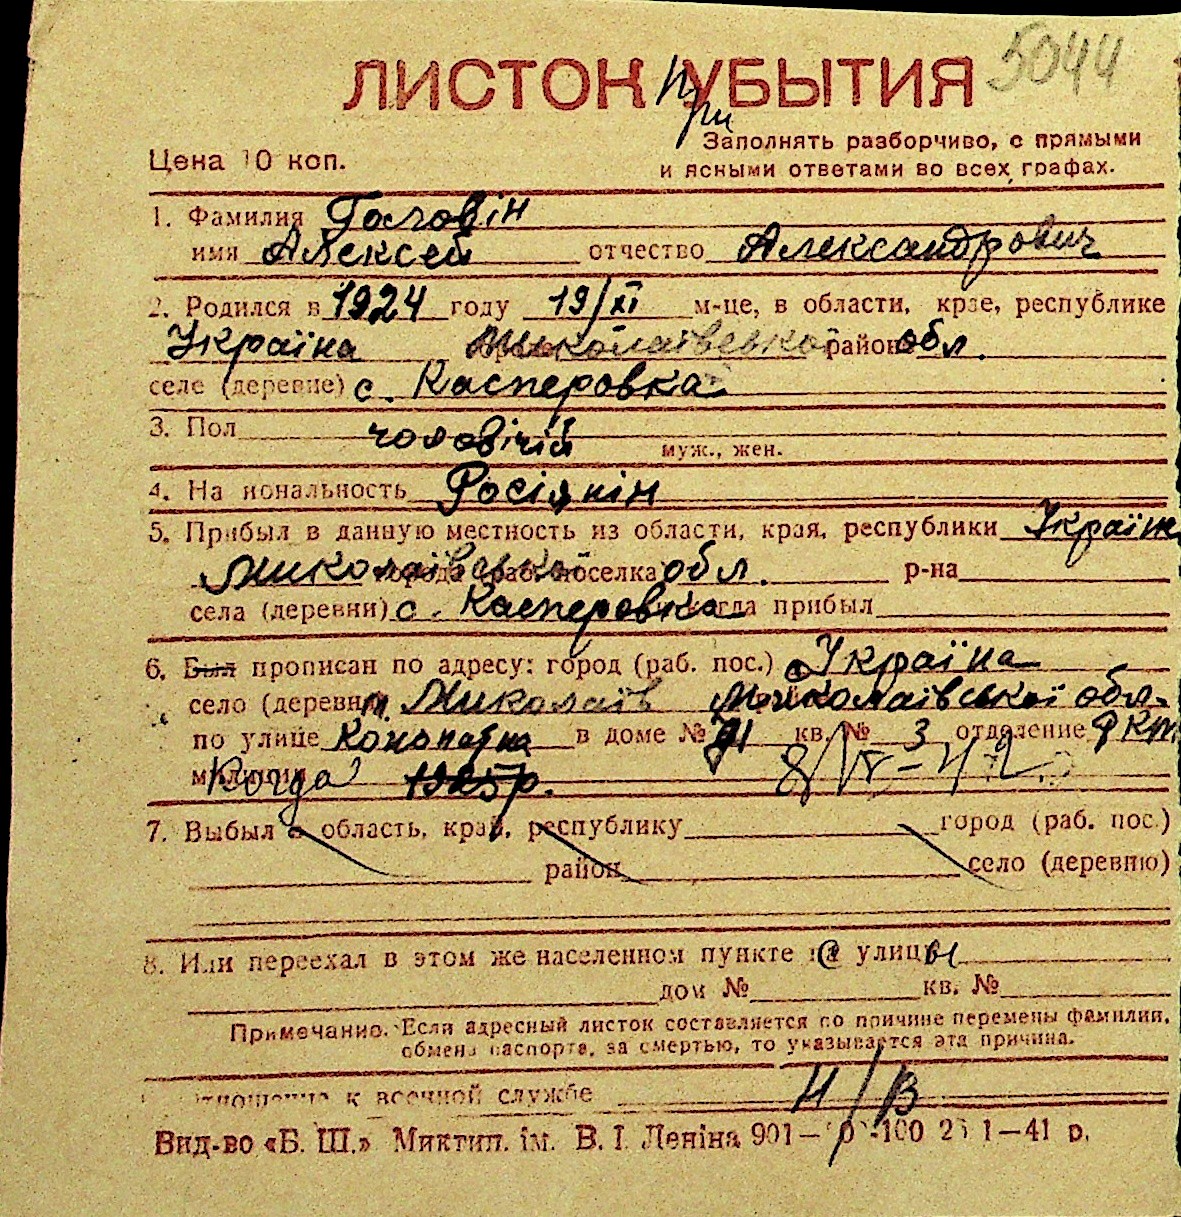 5044
ЛИСТОК УБЫТИЯ
При
Заполнять разборчиво, с прямыми
Цена 10 коп.
и ясными ответами во всех графах.
1. Фамилия Головін
имя Алексей отчество Александрович
2. Родился в 1924 году 19/XI м-це, в области, крае, республике
Україна Миколаївської район обл.
селе (деревне) с. Касперовка
3. Пол чоловічій
муж., жен.
4. Национальность Росіянін
5. Прибыл в данную местность из области, края, республики Україна
Миколаївської города (раб. поселка) обл. р-на
села (деревни) с. Касперовка когда прибыл
6. Был прописан по адресу: город (раб. пос.) Україна
село (деревня) м. Миколаїв Миколаївської обл.
по улице в доме № 71 кв. № 3 отделение
милиции Когда 1925р. 8/VI-42
7. Выбыл в область, край, республику город (раб. пос.)
район село (деревню)
8. Или переехал в этом же населенном пункте с улицы
дом № кв. №
Примечание. Если адресный листок составляется по причине перемены фамилии,
обмена паспорта, за смертью, то указывается эта причина.
Отношение к военной службе Н/В
Вид-во «Б. Ш.» Миктип. ім. В. І. Леніна 901— 1—41 р.